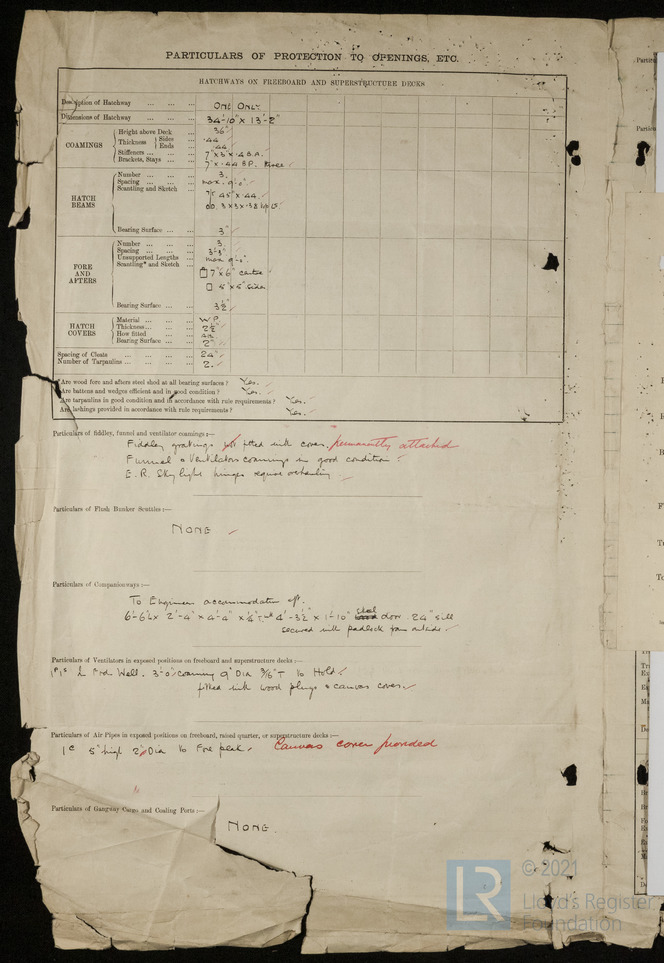 PARTICULARS OF PROTECTION TO OPENINGS, ETC.
HATCHWAYS ON FREEBOARD AND SUPERSTRUCTURE DECKS
Description of Hatchway ... ... ... ONE ONLY
Dimensions of Hatchway ... ... ... 34'-10" x 13'-2"
COAMINGS
Height above Deck ... 36"
Thickness { Sides ... .44
Ends ... .44
Stiffeners ... ... ... 7" x 3" x .4 B.A.
Brackets, Stays ... ... 7" x .44 B.P. three
HATCH BEAMS
Number ... ... ... 3.
Spacing ... ... ... max. 9'-0"
Scantling and Sketch
Bearing Surface ... ... 3"
FORE AND AFTERS
Number ... ... ... 3
Spacing ... ... ... 3'-3"
Unsupported Lengths ... max 9'-0"
Scantling* and Sketch ... 7" x 6" centre
5" x 5" sides
Bearing Surface ... ... 3½"
HATCH COVERS
Material ... ... ... W.P.
Thickness ... ... ... 2½"
How fitted ...
Bearing Surface ... ... 2"
Spacing of Cleats ... ... ... 24"
Number of Tarpaulins ... ... ... 2.
*Are wood fore and afters steel shod at all bearing surfaces? Yes.
Are battens and wedges efficient and in good condition? Yes.
Are tarpaulins in good condition and in accordance with rule requirements? Yes.
Are lashings provided in accordance with rule requirements? Yes.
Particulars of fiddley, funnel and ventilator coamings:—
Fiddley gratings fitted with cover, permanently attached
Funnel & Ventilators coamings in good condition
E.R. Skylight hinges require overhauling
Particulars of Flush Bunker Scuttles:—
NONE
Particulars of Companionways:—
To Engineers accommodation aft.
6'-6" x 2'-4" x 4'-4" x ¼" with 4'-3½" x 1'-10" steel door 24" sill
secured with padlock from outside
Particulars of Ventilators in exposed positions on freeboard and superstructure decks:—
Well. 3'-0" coaming 9" Dia to Hold
fitted with wood plugs & canvas cover
Particulars of Air Pipes in exposed positions on freeboard, raised quarter, or superstructure decks:—
5" high 2" Dia to Fore peak. Canvas cover provided
Particulars of Gangway Cargo and Coaling Ports:—
NONE.
LR © 2021
Lloyd's Register
Foundation